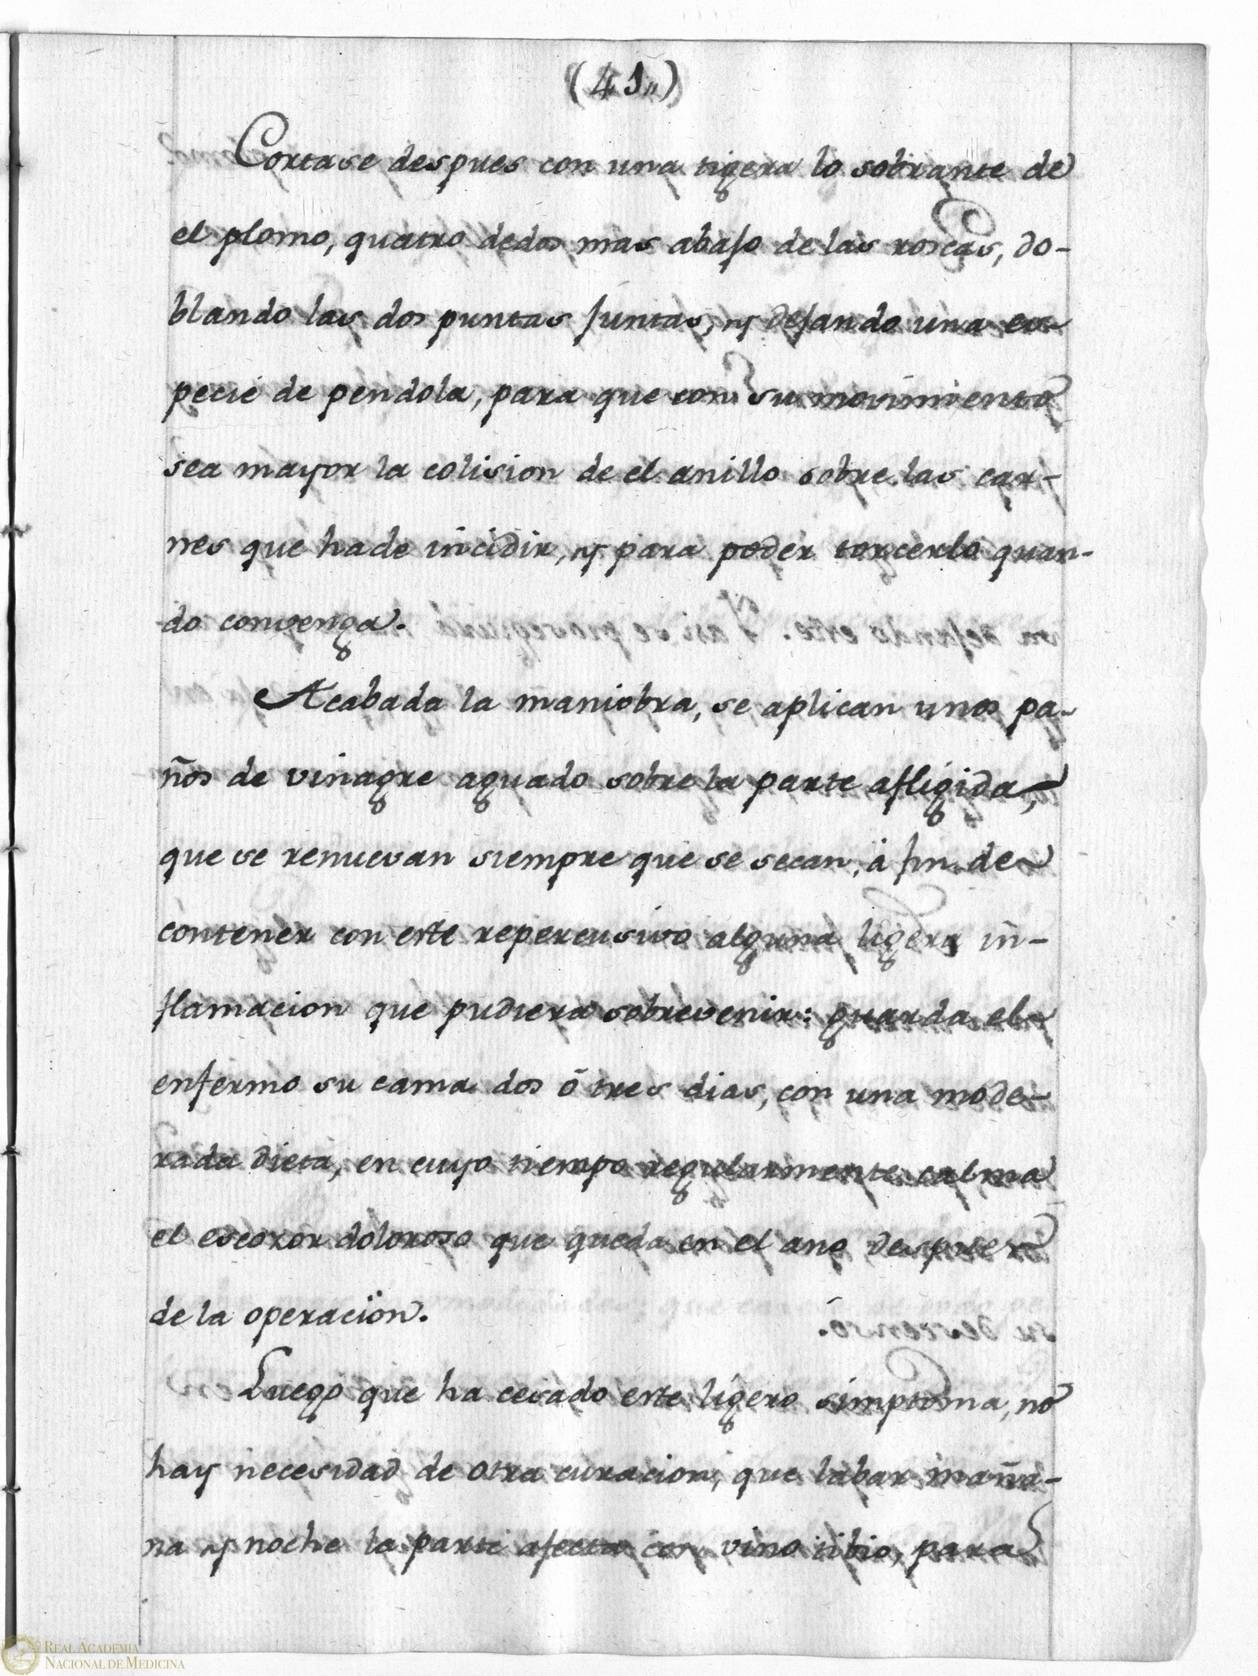 (41,,)
Cortase despues con una tigera lo sobrante de
el plomo, quatro dedos mas abajo de las roscas, do-
blando las dos puntas juntas, y dejando una es-
pecie de pendola, para que con su movimiento
sea mayor la colision de el anillo sobre las car-
nes que hade incidir, y para poder torcerlo quan-
do convenga.
Acabada la maniobra, se aplican unos pa-
ños de vinagre aguado sobre la parte afligida,
que se renuevan siempre que se secan, á fin de
contener con este repercusivo alguna ligera in-
flamacion que pudiera sobrevenir: guarda el
enfermo su cama dos ó tres dias, con una mode-
rada dieta, en cuyo tiempo regularmente calma
el escozor doloroso que queda en el ano despues
de la operacion.
Luego que ha cesado este ligero simptoma, no
hay necesidad de otra curacion, que labar maña-
na y noche la parte afecta con vino tibio, para
REAL ACADEMIA
NACIONAL DE MEDICINA